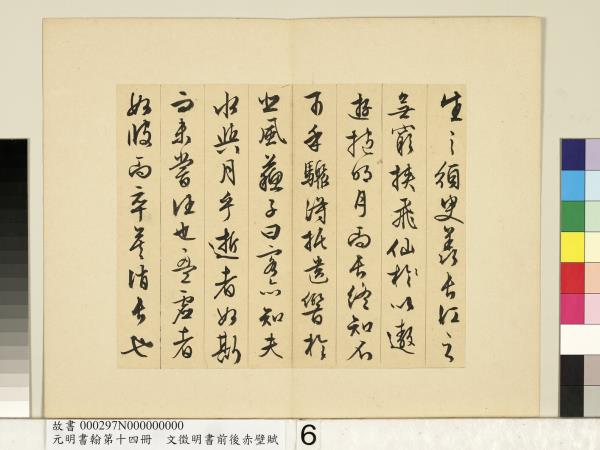 生之須臾羨長江之
無窮挾飛仙於以遨
遊抱明月而長終知不
可乎驟得托遺響於
悲風蘇子曰客亦知夫
水與月乎逝者如斯
而未嘗往也盈虛者
如彼而卒莫消長也
故書 000297N000000000
元明書翰第十四冊 文徵明書前後赤壁賦
6